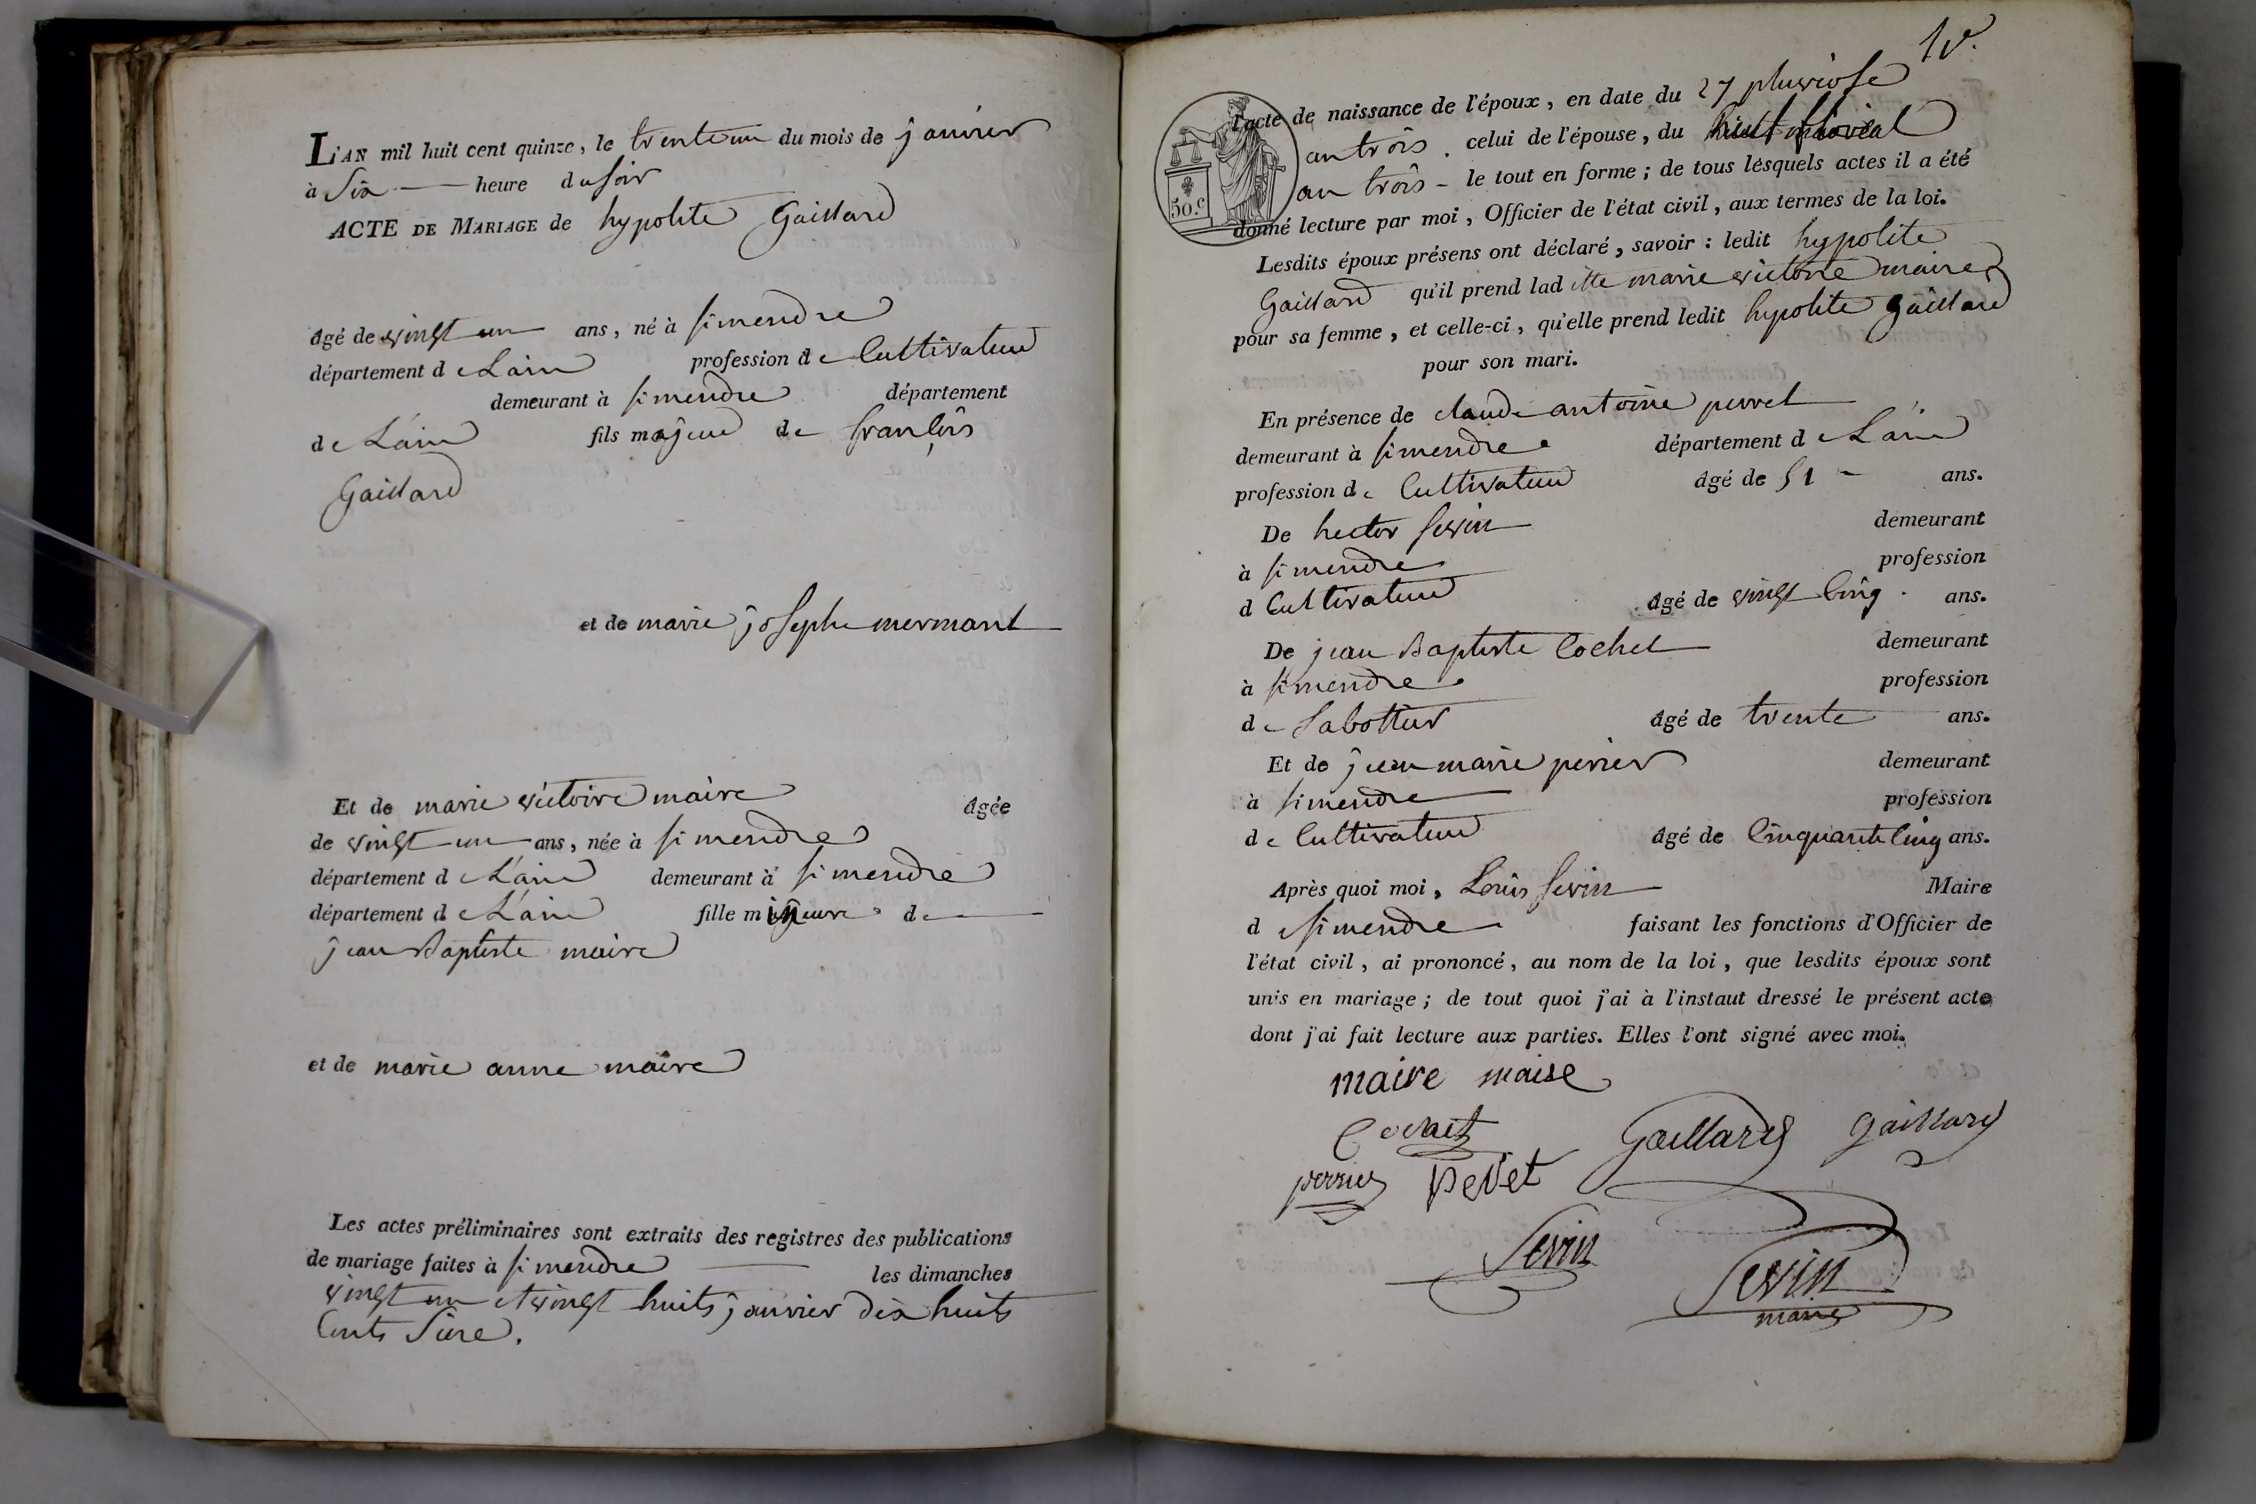 L'AN mil huit cent quinze, le trente un du mois de janvier
à Six heure du soir
ACTE DE MARIAGE de hypolite Gaillard
âgé de vingt un ans, né à simendre
département de L'ain profession de Cultivateur
demeurant à simendre département
de L'ain fils majeur de françois
Gaillard
et de marie josephe mermant
Et de marie victoire maire âgée
de vingt un ans, née à simendre
département de L'ain demeurant à simendre
département de L'ain fille mineure de
jean Baptiste maire
et de marie anne maire
Les actes préliminaires sont extraits des registres des publications
de mariage faites à simendre les dimanches
vingt un et vingt huits janvier dix huits
Cents
1er.
l'acte de naissance de l'époux, en date du 27 pluviose
an trois. celui de l'épouse, du floréal
an trois - le tout en forme; de tous lesquels actes il a été
50.c
donné lecture par moi, Officier de l'état civil, aux termes de la loi.
Lesdits époux présens ont déclaré, savoir: ledit hypolite
Gaillard qu'il prend laditte marie victoire maire
pour sa femme, et celle-ci, qu'elle prend ledit hypolite gaillard
pour son mari.
En présence de claude antoine perret
demeurant à simendre département de L'ain
profession de Cultivateur âgé de 51 ans.
De hector sevin demeurant
à simendre profession
d Cultivateur âgé de vingt Cinq. ans.
De jean Baptiste Cochet demeurant
à simendre profession
de Sabottier âgé de trente ans.
Et de jean marie perier demeurant
à simendre profession
de Cultivateur âgé de Cinquante Cinq ans.
Après quoi moi, Louis sevin Maire
de simendre faisant les fonctions d'Officier de
l'état civil, ai prononcé, au nom de la loi, que lesdits époux sont
unis en mariage; de tout quoi j'ai à l'instant dressé le présent acte
dont j'ai fait lecture aux parties. Elles l'ont signé avec moi.
maire maire
Cochet Gaillard gaillard
perrier
Sevin
Sevin
maire